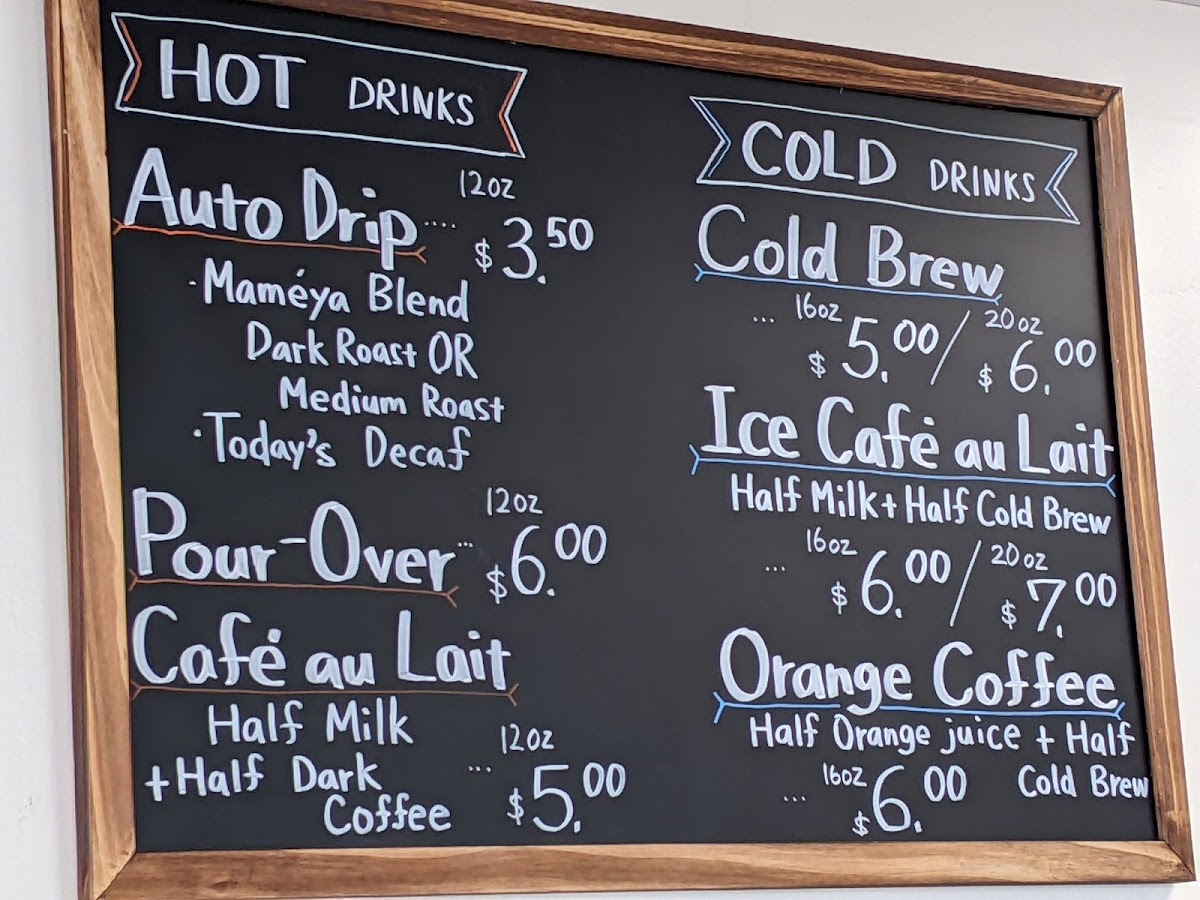 HOT DRINKS
12oz
Auto Drip .... $3.50
· Maméya Blend
Dark Roast OR
Medium Roast
· Today's Decaf
12oz
Pour-Over ... $6.00
Café au Lait
Half Milk
+ Half Dark
Coffee
12oz
... $5.00
COLD DRINKS
Cold Brew
... 16oz $5.00 / 20oz $6.00
Ice Café au Lait
Half Milk + Half Cold Brew
... 16oz $6.00 / 20oz $7.00
Orange Coffee
Half Orange juice + Half
Cold Brew
... 16oz $6.00